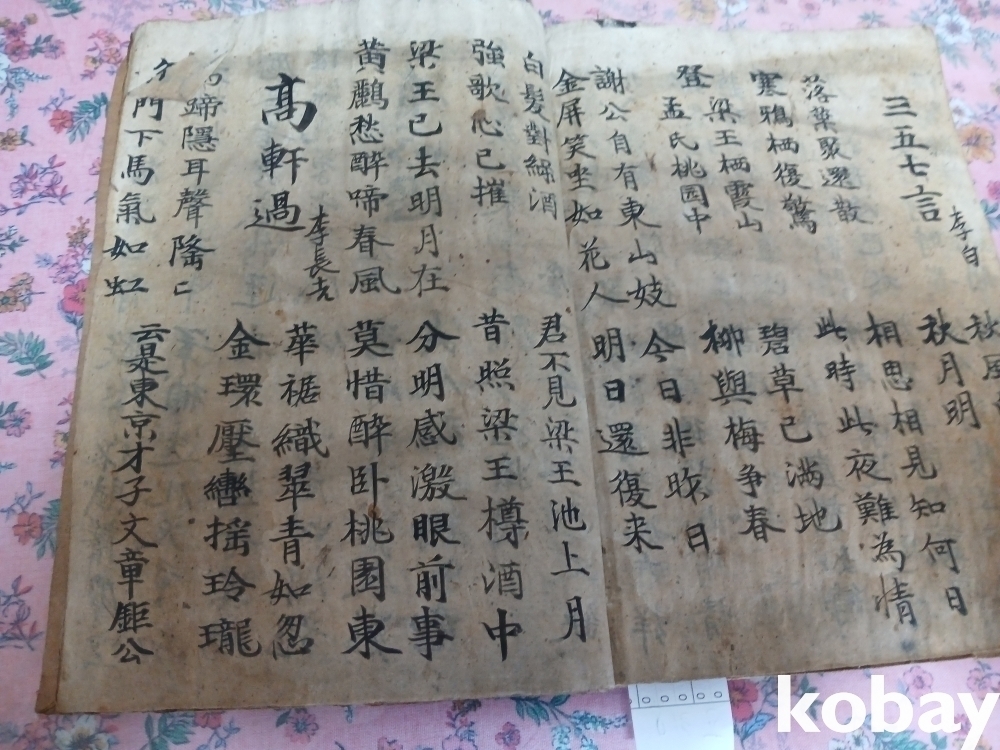 三五七言 李白
秋風
秋月明
落葉聚還散
寒鴉栖復驚
相思相見知何日
此時此夜難為情
登梁王栖霞山
孟氏桃园中
碧草已滿地
柳與梅爭春
謝公自有東山妓
金屏笑坐如花人
今日非昨日
明日還復来
白髮對綠酒
強歌心已摧
君不見梁王池上月
昔照梁王樽酒中
梁王已去明月在
黃鸝愁醉啼春風
分明感激眼前事
莫惜醉卧桃園東
高軒過 李長吉
華裾織翠青如怱
金環壓轡搖玲瓏
蹄隱耳聲隆〻
門下馬氣如虹
云是東京才子文章鉅公
kobay